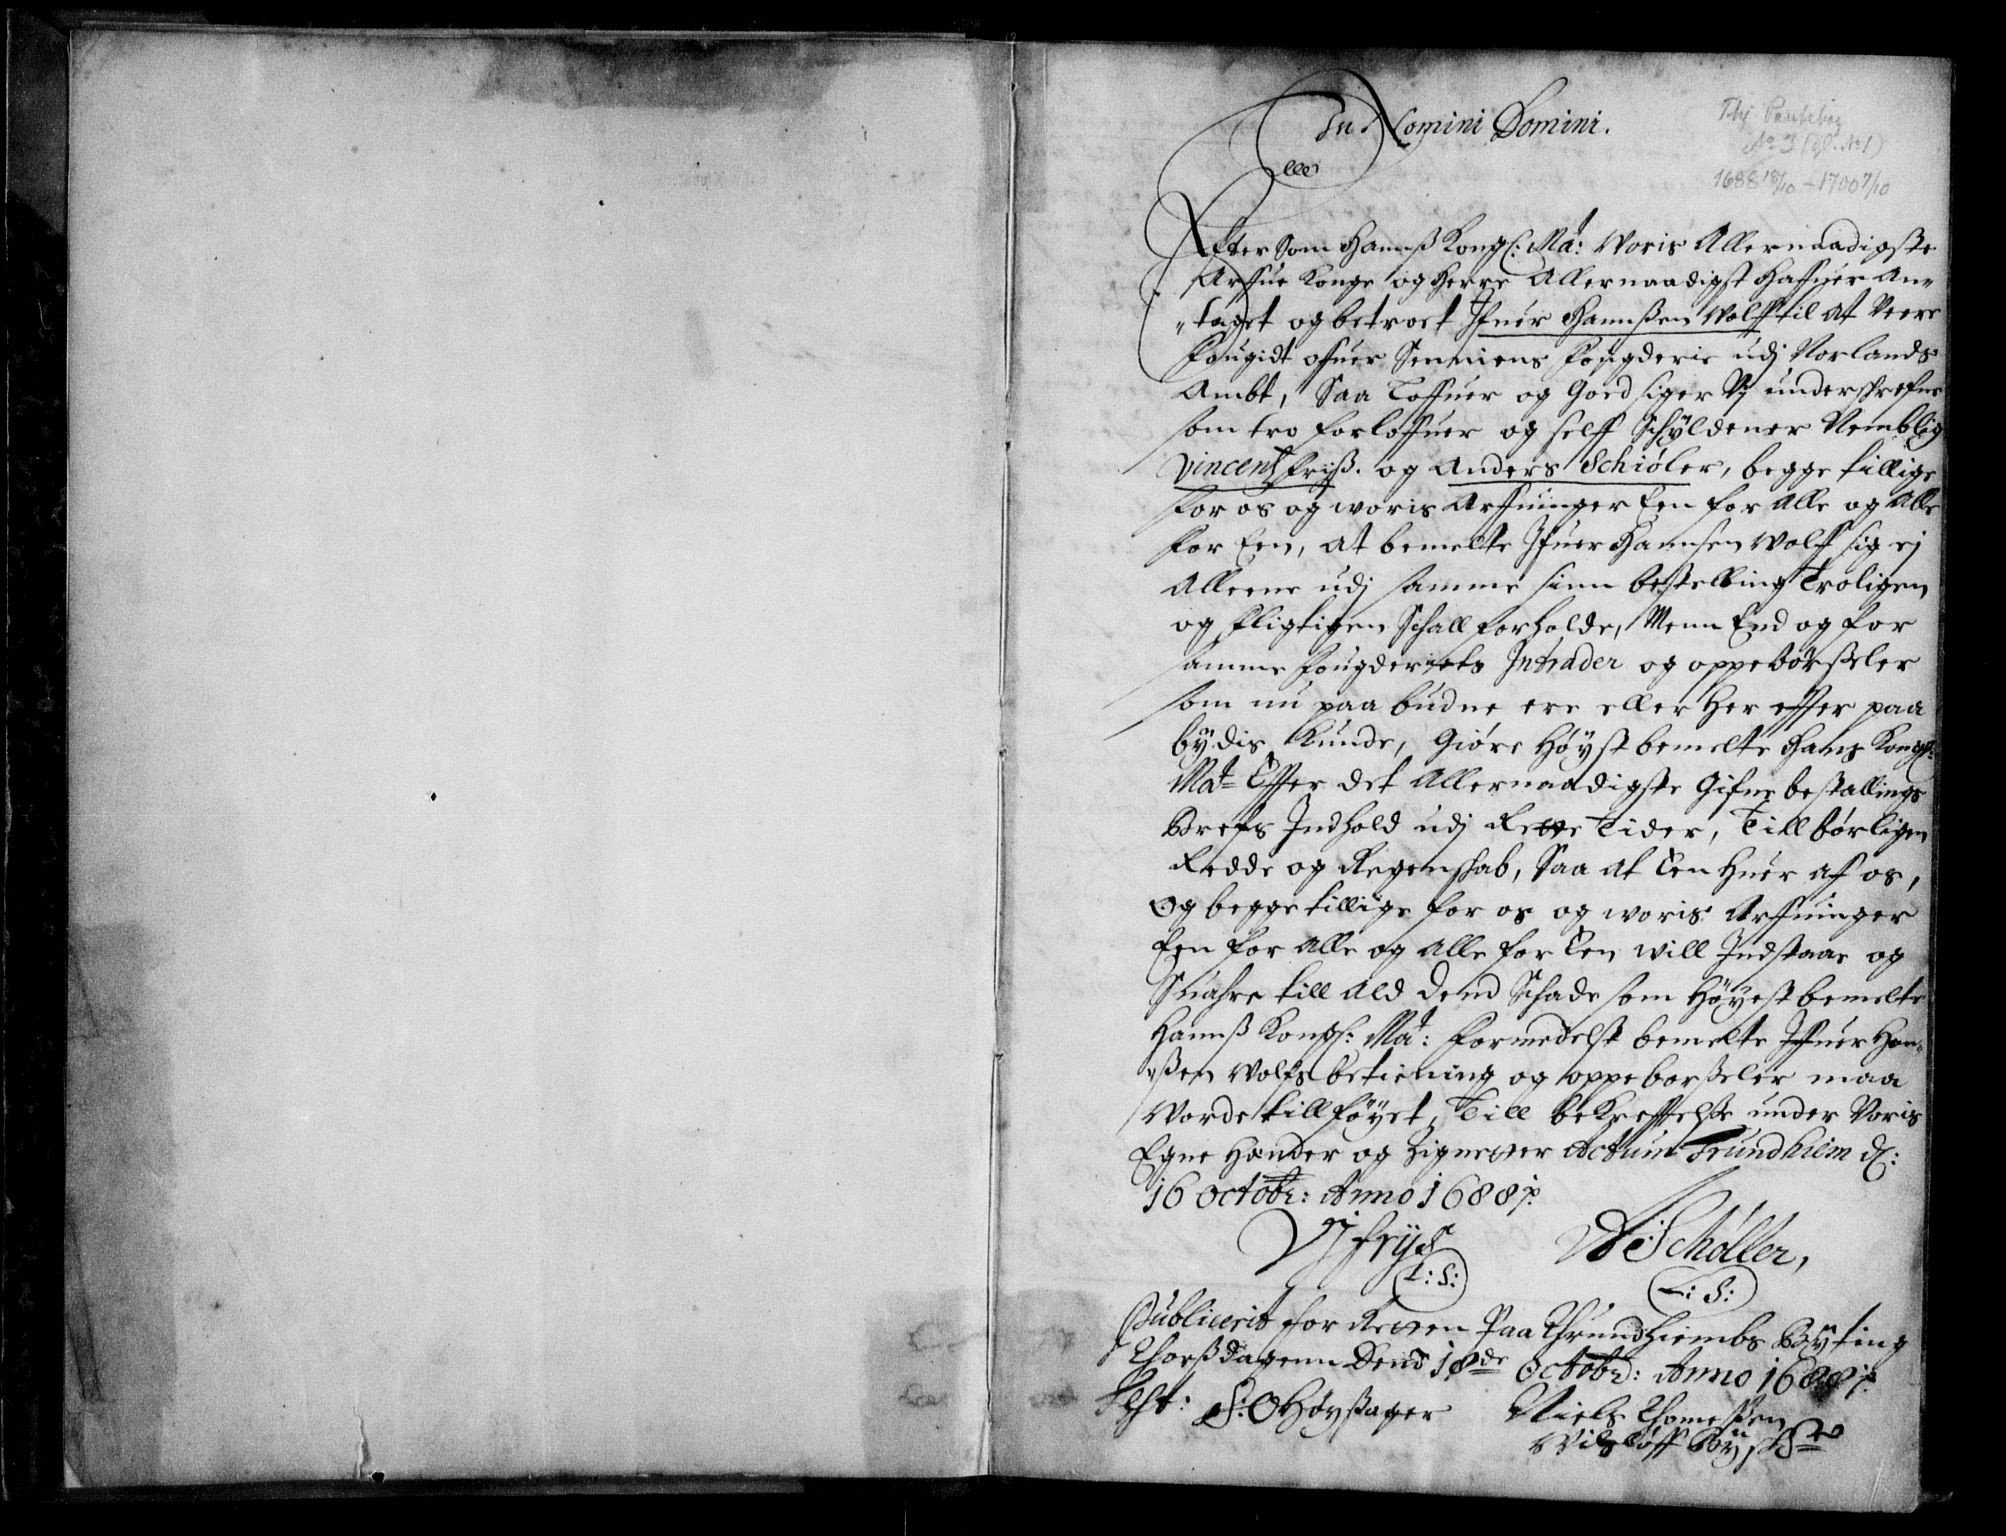 In Nomini Domini.
Thj. Pantebog
No 3 (gl. No 1)
1688 18/10 - 1700 7/10
Efter som Hannß Kongl: Mat: Woris Allernaadigste
Arffue Konge og Herre Allernaadigst Haffuer An„
„taget og betroet Ifuer Hannßen Wolff til at Veere
Fougidt offuer Senniens Fougderie udj Norlands
Ambt, Saa Loffuer og Goed siger Vj underschrefne
som tro Forloffuer og self Schyldener Nemblig
Vincentz Friß. og Anders Schiøler, begge tillige
For os og woris Arffuinger Een for Alle og Alle
For Een, at bemelte Ifuer Hannsen Wolff sig ej
Alleene udj samme sinn bestelling Troligen
og Fligtigen Schall forholde, Menn End og for
samme Fougderiets Intrader og oppebørßeler
som nu paa budne ere eller Her effter paa
bydis Kunde, Giøre Høyst bemelte Hans Kongl:
Mat= Effter det Allernaadigste Gifne bestallings
Brefs Indhold udj Rette Tider, Till børligen
Redde og Regenschab, Saa at Een Huer af os,
Og begge tillige for os og woris Arffuinger
Een for Alle og Alle for Een will Indstaae og
Suahre till Ald Dend Schade som Høyest bemelte
Hannß Kongl: Mat: Formedelst bemelte Iffuer Han„
„ßen Wolfs betiening og oppeborßeler maa
Vorde tillføyet, Till bekreffttelße under Voris
Egne Hænder og Zigneter Actum Trundhiem d:
16 Octobr: Anno 1688 p.
VFryß A: Schøller,
L: S: L: S:
Publicerit for Retten Paa Thrundhiembs Byting
Thorßdagenn Dend 18de Octobr: Anno 1688 p.
Test: S: O Høyßager Niels Thomeßen
Wilsløff Byschr